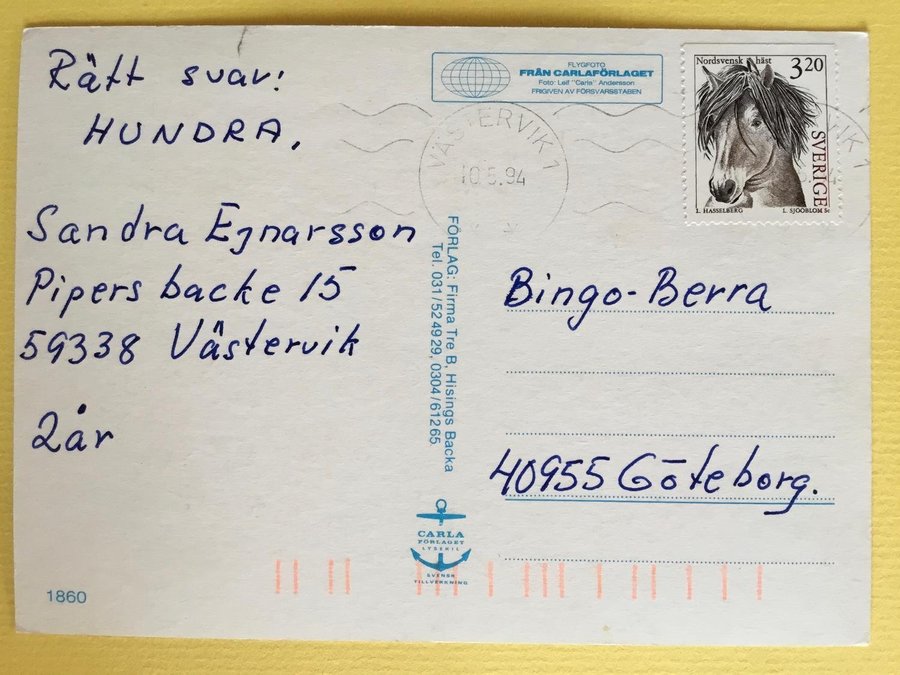 Rätt svar:
HUNDRA.
Sandra Ejnarsson
Pipers backe 15
59338 Västervik
2år
1860
FLYGFOTO
FRÅN CARLAFÖRLAGET
Foto: Leif "Carla" Andersson
FRIGIVEN AV FÖRSVARSSTABEN
VÄSTERVIK 1
10.5.94
Nordsvensk häst
3.20
SVERIGE
L. HASSELBERG
L. SJÖÖBLOM Sc
FÖRLAG: Firma Tre B, Hisings Backa
Tel. 031/524929, 0304/61265
CARLA
FÖRLAGET
LYSEKIL
SVENSK
TILLVERKNING
Bingo-Berra
40955 Göteborg.